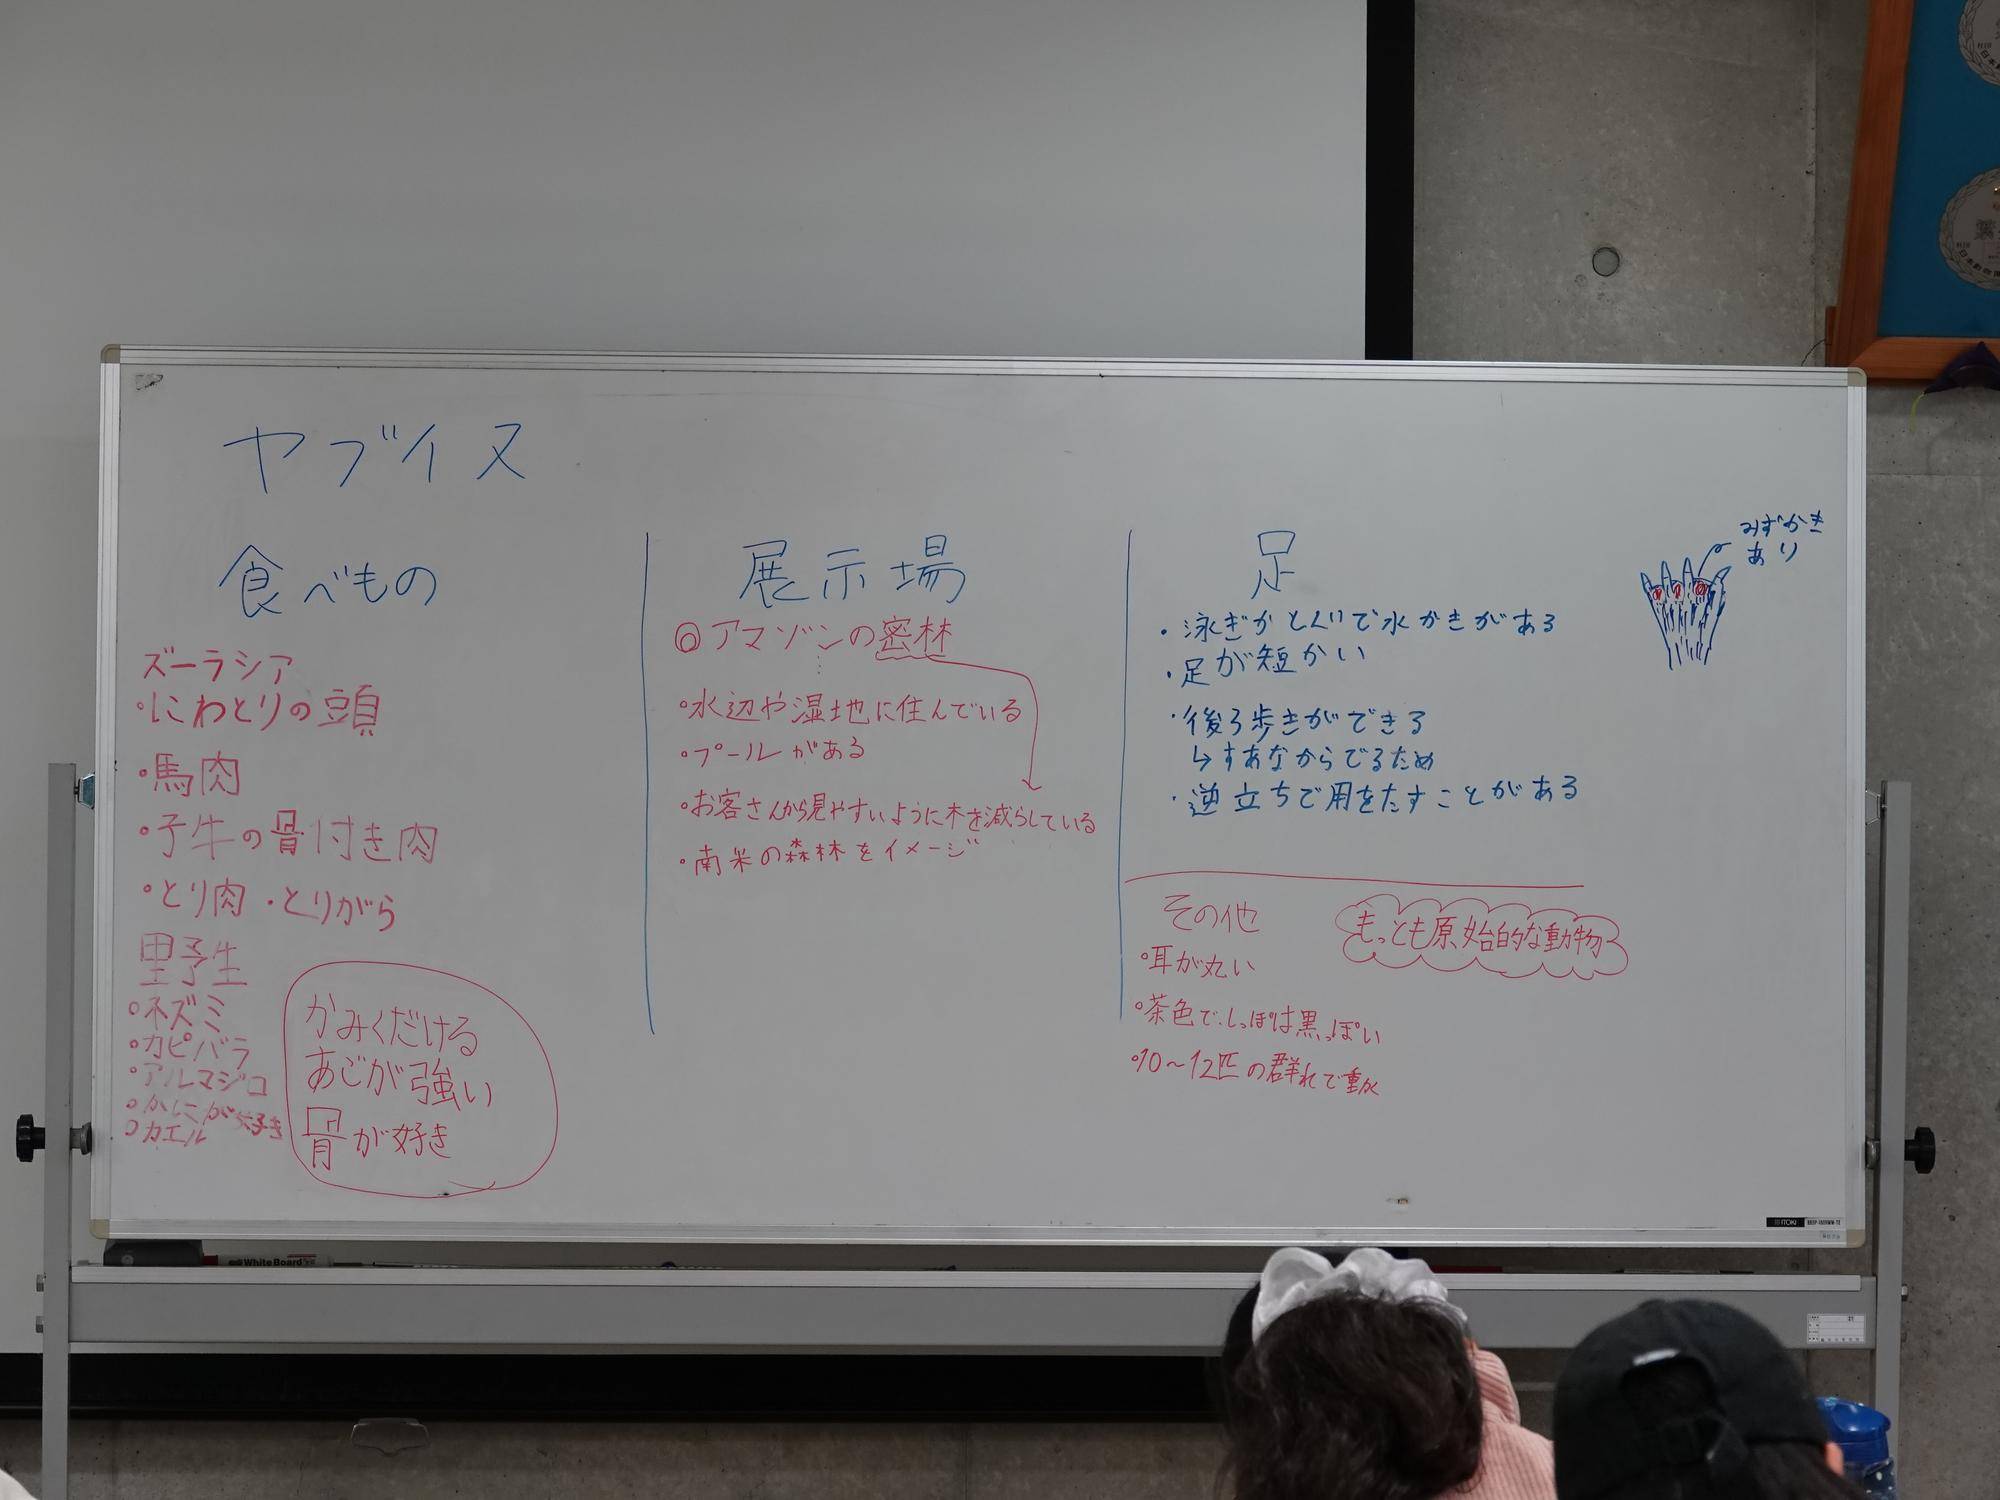 ヤブイヌ
食べもの
ズーラシア
・にわとりの頭
・馬肉
・子牛の骨付き肉
・とり肉 ・とりがら
野生
・ネズミ
・カピバラ
・アルマジロ
・かにが好き
・カエル
かみくだける
あごが強い
骨が好き
展示場
◎アマゾンの密林
・水辺や湿地に住んでいる
・プールがある
・お客さんから見やすいように木を減らしている
・南米の森林をイメージ
足
・泳ぎがとくいで水かきがある
・足が短かい
・後ろ歩きができる
↳すあなからでるため
・逆立ちで用をたすことがある
みずかき
あり
その他
もっとも原始的な動物
・耳が丸い
・茶色で、しっぽは黒っぽい
・10～12匹の群れで動く
ITOKI
White Board